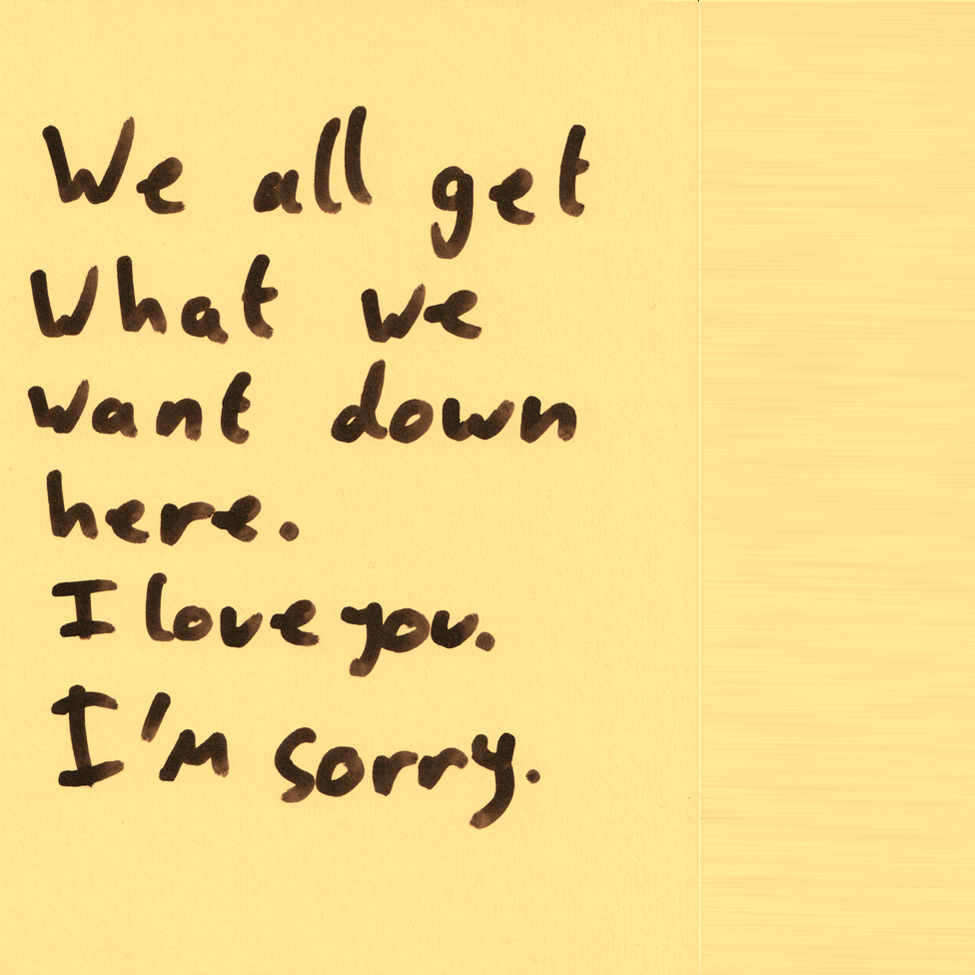 We all get
What we
want down
here.
I love you.
I'm sorry.